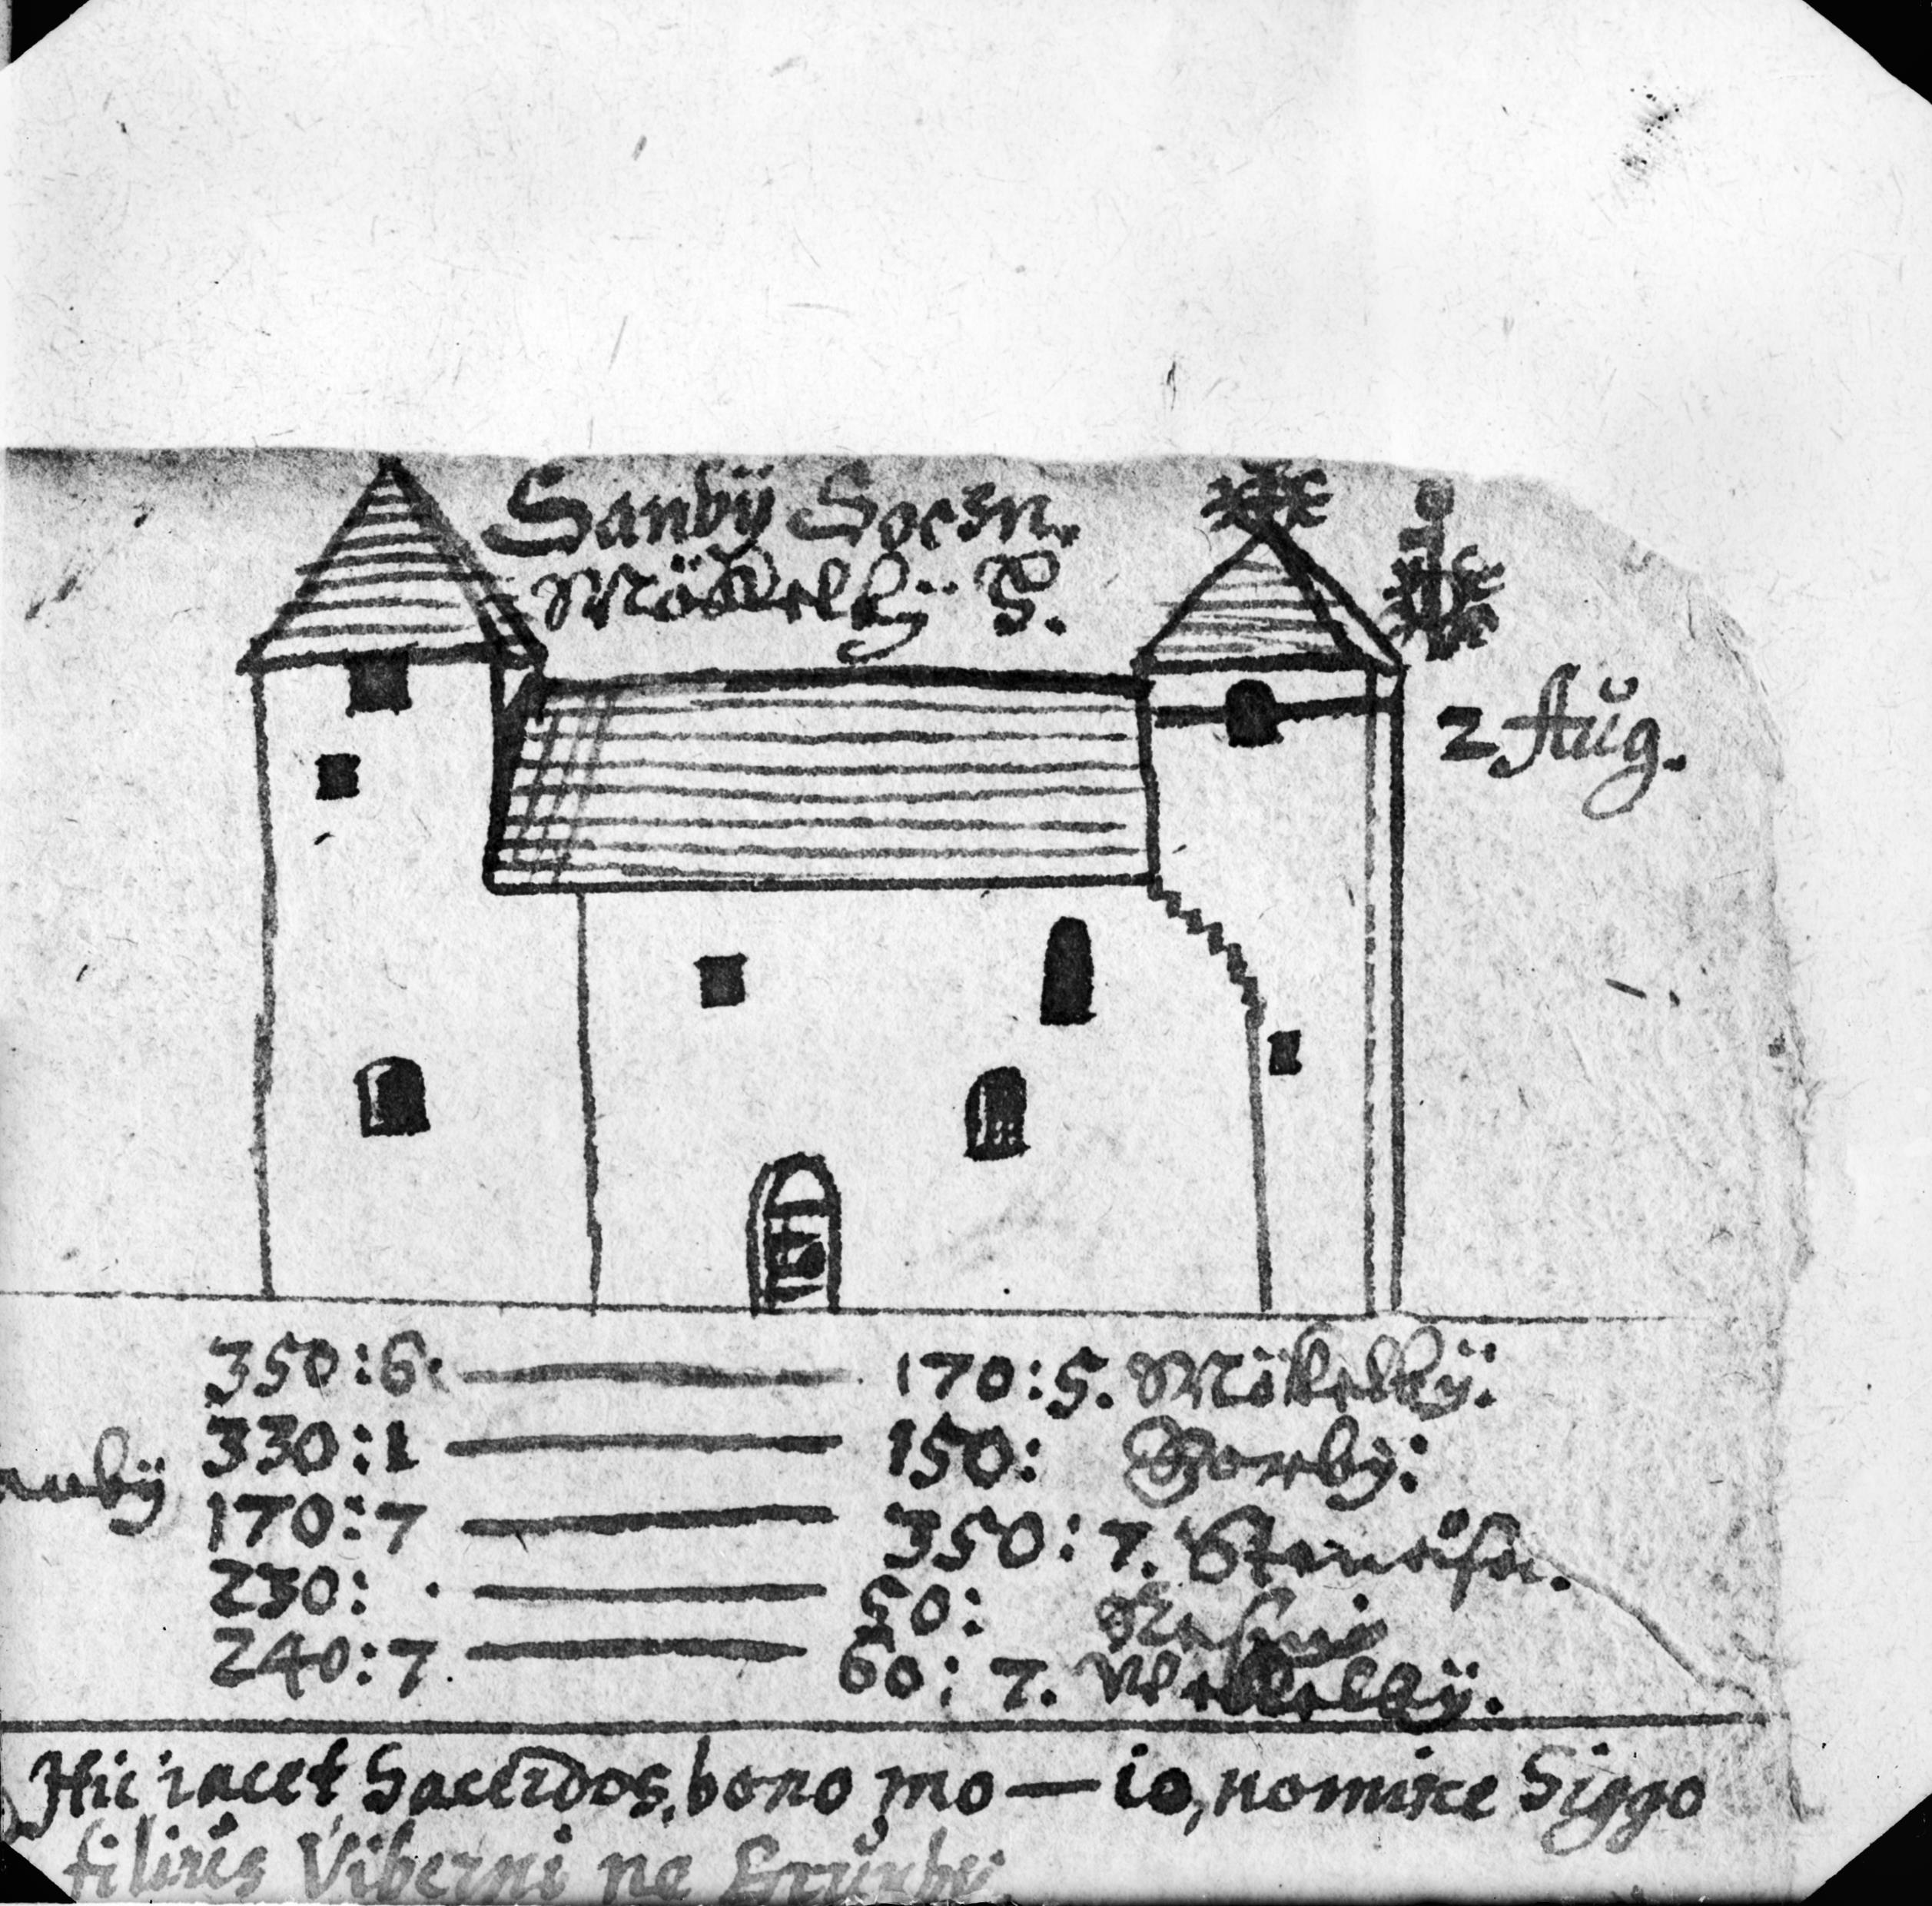 Sanbÿ Soczn.
Mökelbÿ S.
2 Aŭg.
350:6. 170:5. Mökelbÿ.
330:1 150: Borby:
anbÿ
170:7 350:7. Stenåsa.
230: 50:
240:7. 60:7.
Hic iacet Sacerdos, bono mo — io, nomine Siggo
filius Viberni